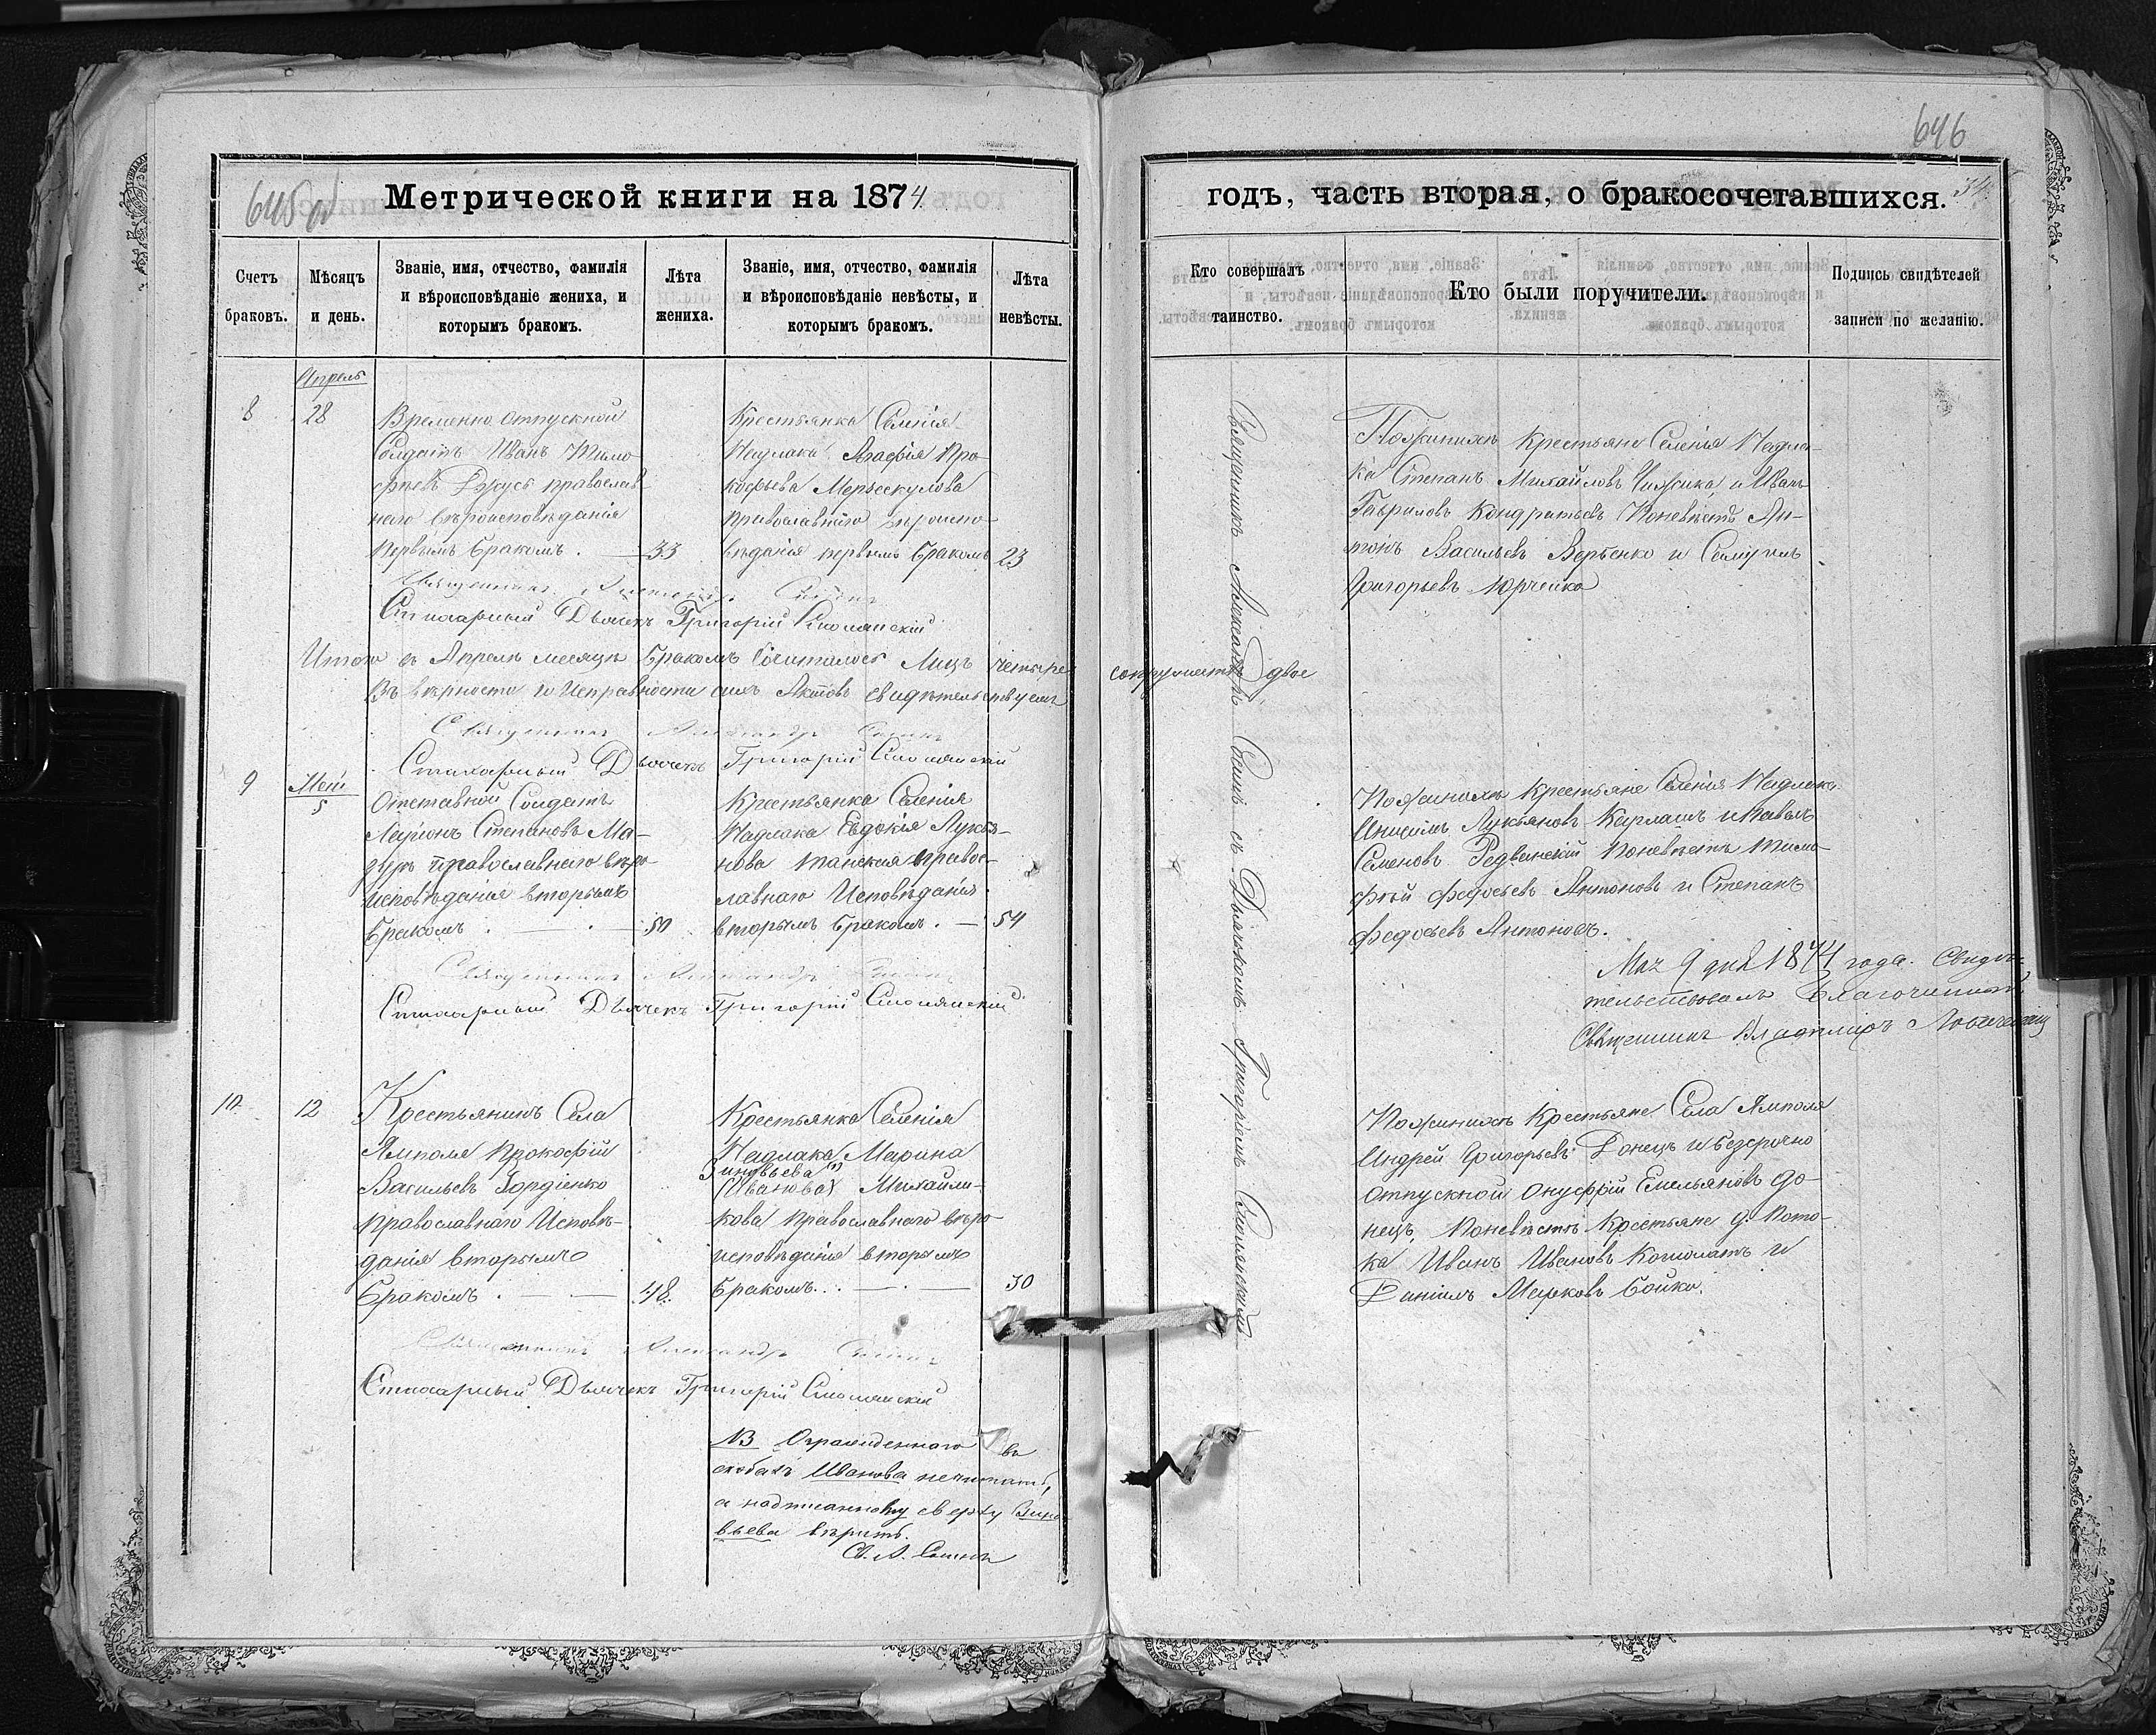 645 об
Метрической книги на 1874
Счетъ браковъ.
Мѣсяцъ и день.
Званіе, имя, отчество, фамилія и вѣроисповѣданіе жениха, и которымъ бракомъ.
Лѣта жениха.
Званіе, имя, отчество, фамилія и вѣроисповѣданіе невѣсты, и которымъ бракомъ.
Лѣта невѣсты.
Апрель
8
28
Временно отпускной
Солдатъ Иванъ Тимо
православ
наго вѣроисповѣданія
первымъ бракомъ.
33
Крестьянка Селенія
Надлака Агафія Про-
кофьева
православнаго вѣроиспо-
вѣданія первымъ бракомъ
23
Священникъ Александръ
Стихарный Дьячекъ Григорій Смолянскій
Итого въ Апрелѣ месяцѣ бракомъ Сочиталось Лицъ четыре
Въ вѣрности и исправности сихъ Актовъ свидѣтельствуемъ
Священникъ Александръ
Стихарный Дьячекъ Григорій Смолянскій
9
Май
5
Отставной Солдатъ
Степановъ Ма-
зуръ православнаго вѣро-
исповѣданія вторымъ
бракомъ
50
Крестьянка Селенія
Надлака Евдокія Лукья-
нова православ-
лавнаго Исповѣданія
вторымъ бракомъ.
54
Священникъ Александръ
Стихарный Дьячекъ Григорій Смолянскій
10
12
Крестьянинъ Села
Ямполя Прокофій
Васильевъ Гордіенко
православнаго Исповѣ-
данія вторымъ
бракомъ
48.
Крестьянка Селенія
Надлака Марина
Зиновьева
(Иванова) Михайли-
кова православнаго вѣро-
исповѣданія вторымъ
бракомъ.
30
Священникъ Александръ
Стихарный Дьячекъ Григорій Смолянскій
NB Огражденнаго въ
скобахъ Иванова нечитать,
а надписанному сверху Зино
вьева вѣрить.
646
годъ, часть вторая, о бракосочетавшихся.
34
Кто совершалъ таинство.
Кто были поручители.
Подпись свидѣтелей записи по желанію.
Священникъ Александръ съ Дьячкомъ Григоріемъ Смолянскимъ
Пожениха Крестьяне Селенія Надла-
ка Степанъ Михайловъ Чижика, и Иванъ
Гавриловъ Кондратьевъ Поневѣстѣ Ан-
тонъ Васильевъ Вербенко и Самуилъ
Григорьевъ Юрченко
супружествъ двое
Пожениха Крестьяне Селенія Надлака
Лукьяновъ и Павелъ
Семеновъ Поневѣстѣ Тимо-
фей Федосѣевъ Антоновъ и Степанъ
Федосѣевъ Антоновъ.
Мая 9 дня 1874 года. Свидѣ-
тельствовалъ Благочинный
Священникъ Владиміръ
Пожениха Крестьяне Села Ямполя
Андрей Григорьевъ Донецъ и безсрочно
отпускной Онуфрій Емельяновъ До-
нецъ, Поневѣстѣ Крестьяне д. Пото-
ка Иванъ Ивановъ и
Даніилъ Марковъ Бойко.